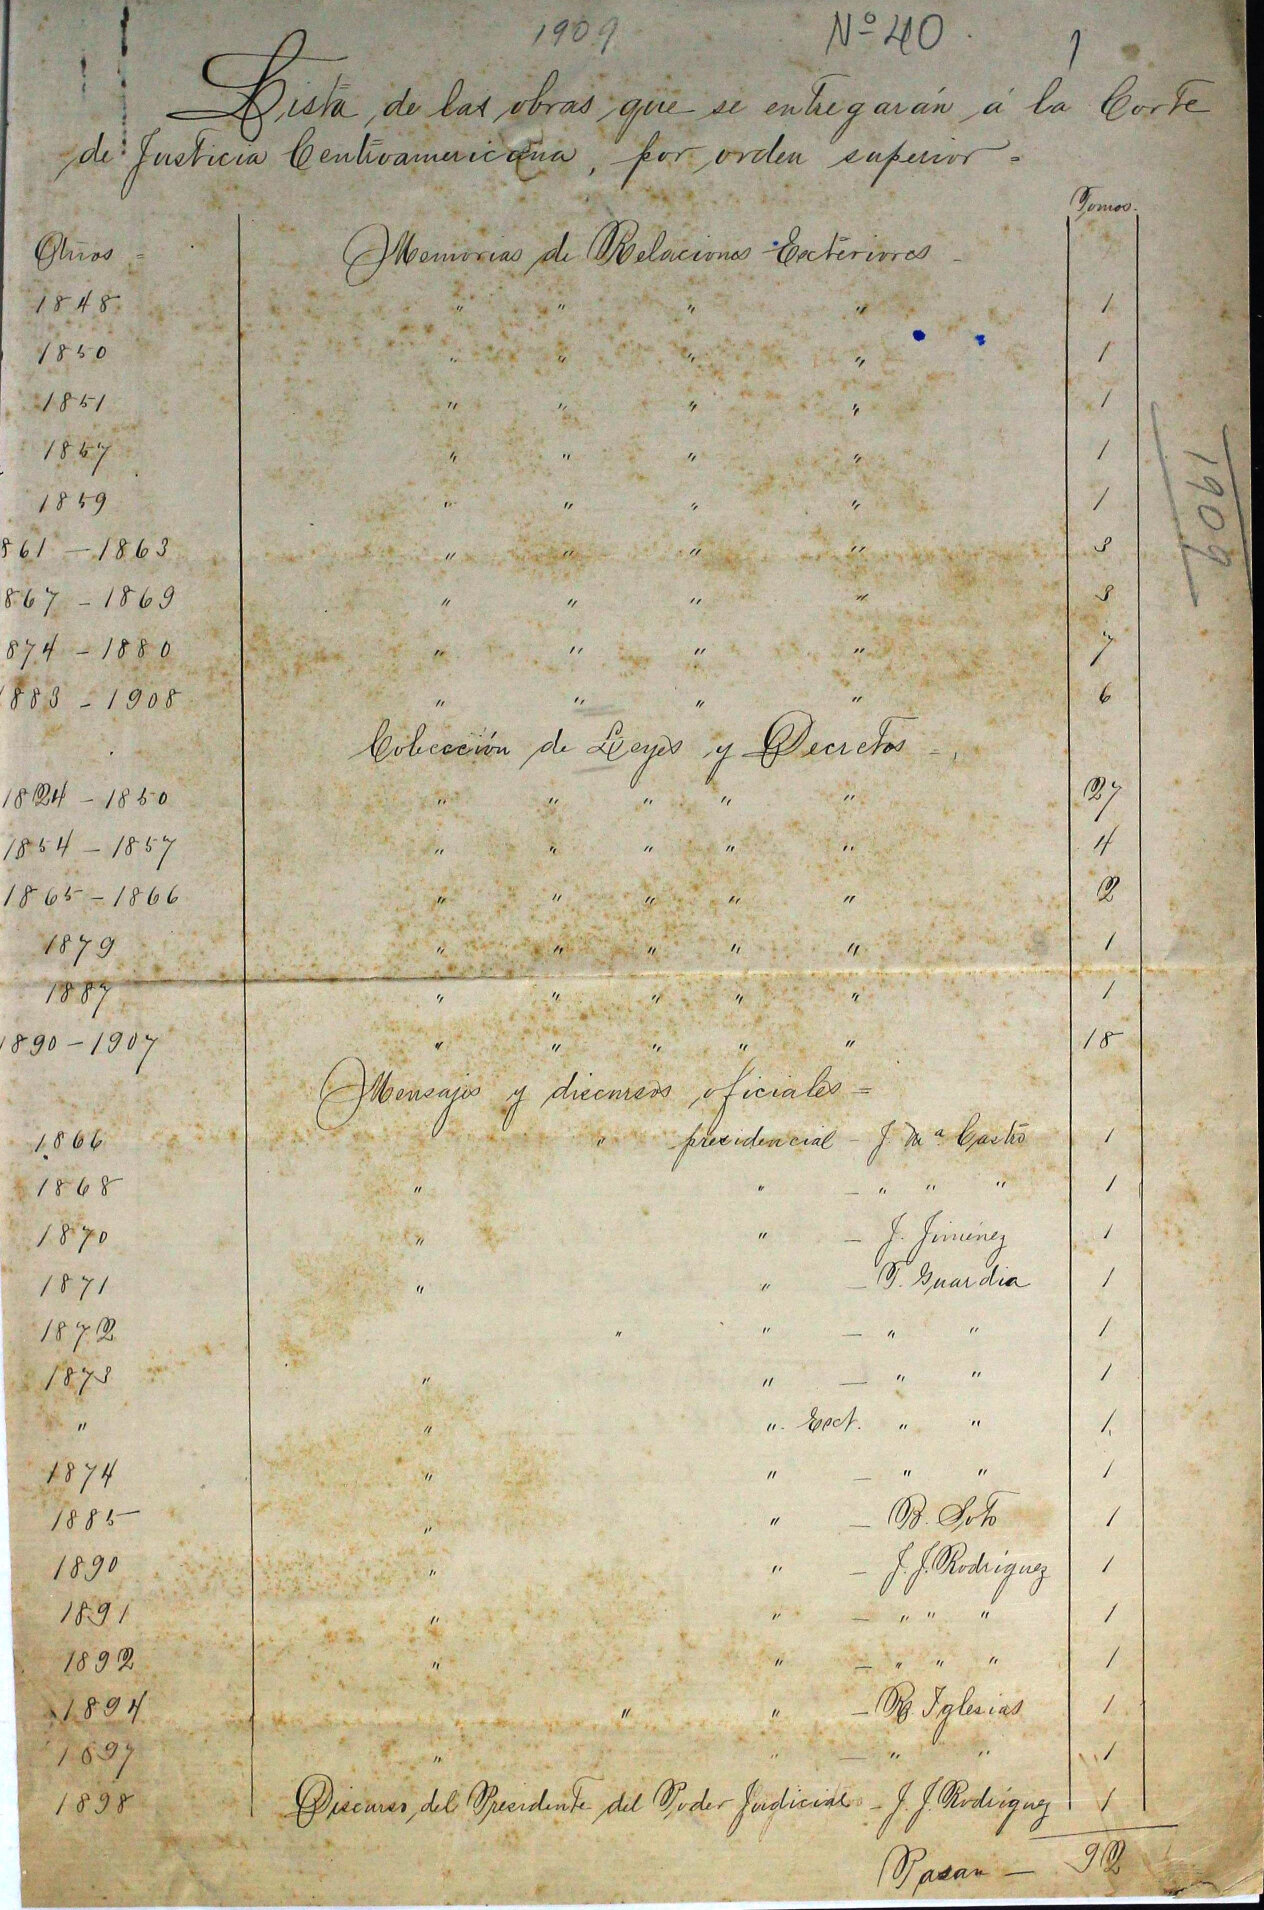 1909 Nº 40 1
Lista de las obras que se entregarán á la Corte
de Justicia Centroamericana, por orden superior =
Tomos.
Años = Memorias de Relaciones Exteriores -
1848 " " " " 1
1850 " " " " 1
1851 " " " " 1
1857 " " " " 1
1859 " " " " 1
861 - 1863 " " " " 3
867 - 1869 " " " " 3
874 - 1880 " " " " 7
1883 - 1908 " " " " 6
Colección de Leyes y Decretos -
1824 - 1850 " " " " " 27
1854 - 1857 " " " " " 4
1865 - 1866 " " " " " 2
1879 " " " " " 1
1887 " " " " " 1
1890 - 1907 " " " " " 18
Mensajes y discursos oficiales =
1866 " presidencial - J. Mª. Castro 1
1868 " " - " " " 1
1870 " " - J. Jiménez 1
1871 " " - T. Guardia 1
1872 " " - " " 1
1873 " " - " " 1
" " ". Ext. " " 1
1874 " " - " " 1
1885 " " - B. Soto 1
1890 " " - J. J. Rodríguez 1
1891 " " - " " " 1
1892 " " - " " " 1
1894 " " - R. Iglesias 1
1897 " " - " " 1
1898 Discurso del Presidente del Poder Judicial - J. J. Rodríguez 1
Pasan - 92
1909